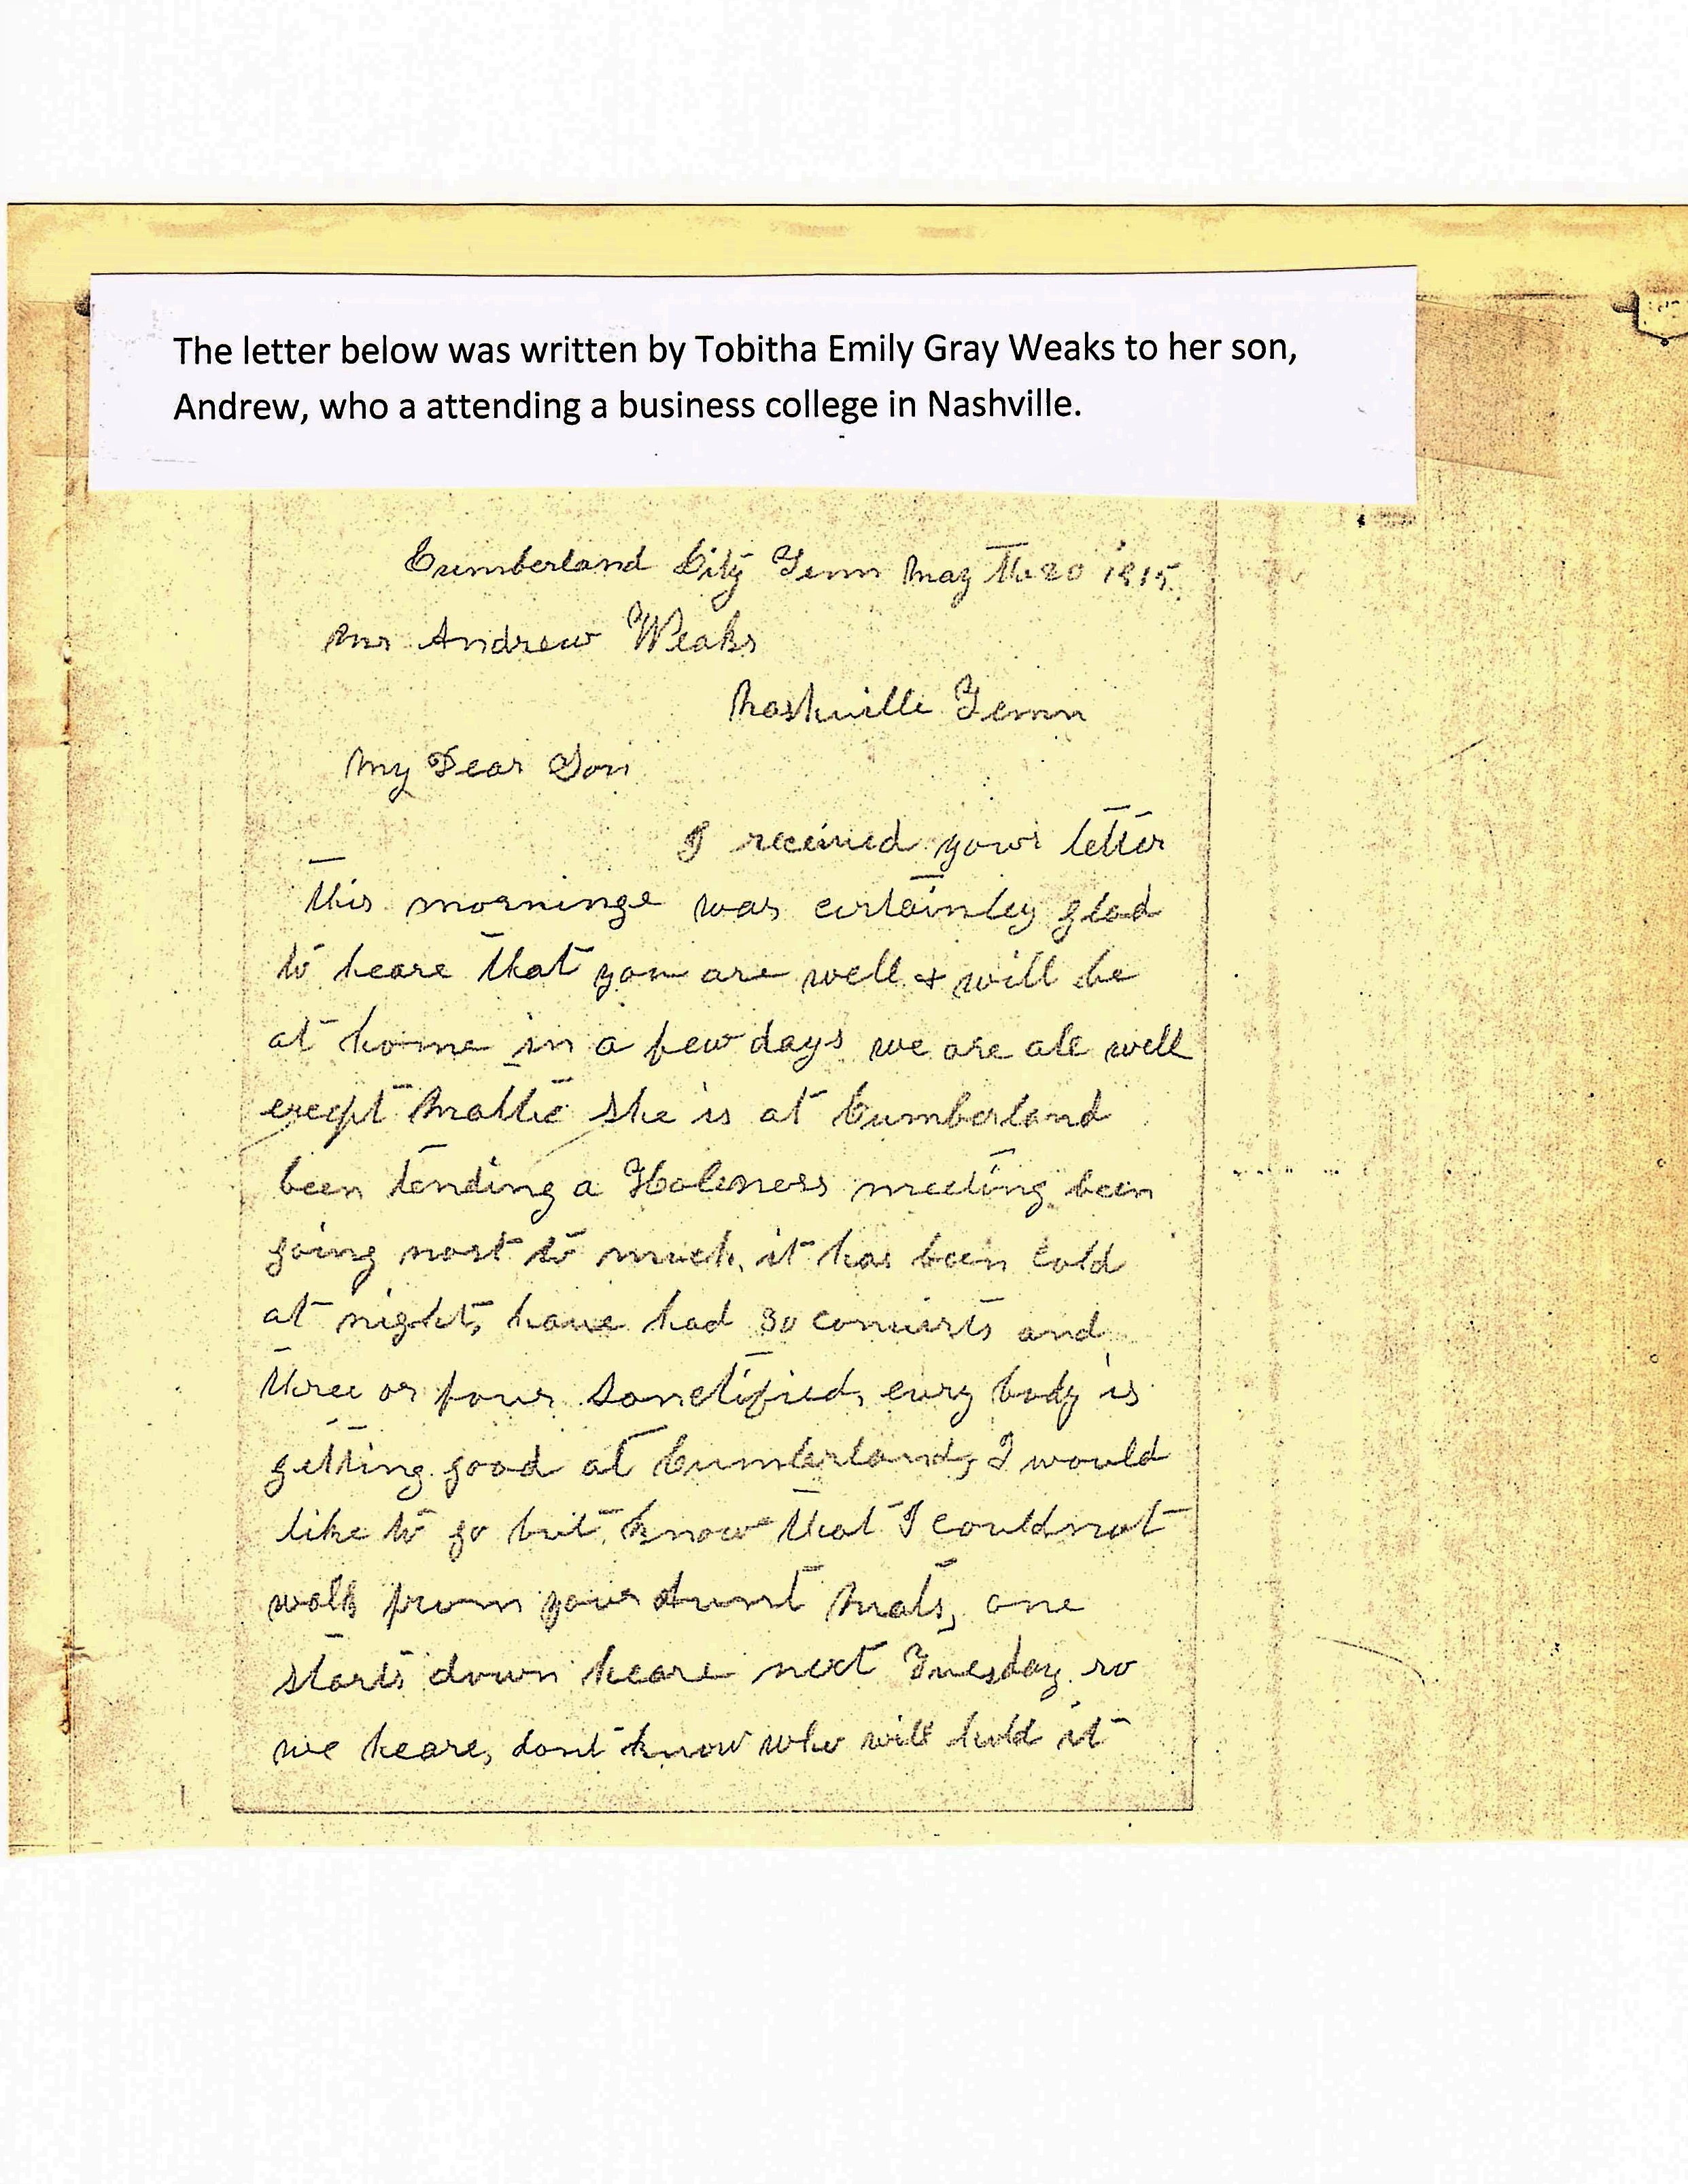 The letter below was written by Tobitha Emily Gray Weaks to her son,
Andrew, who a attending a business college in Nashville.
Cumberland City Tenn May The 20 1915
Mr Andrew Weaks
Nashville Tenn
My Dear Son
I received your letter
this morninge was certainley glad
to heare that you are well & will be
at home in a few days we are all well
except Mattie she is at Cumberland
been tending a Holeness meeting been
going most to much, it has been cold
at night, have had 30 converts and
three or four sanctified, evry body is
getting good at Cumberland, I would
like to go but know that I couldnot
walk from your Aunt Mats, one
starts down heare next Tuesday so
we heare, dont know who will hold it